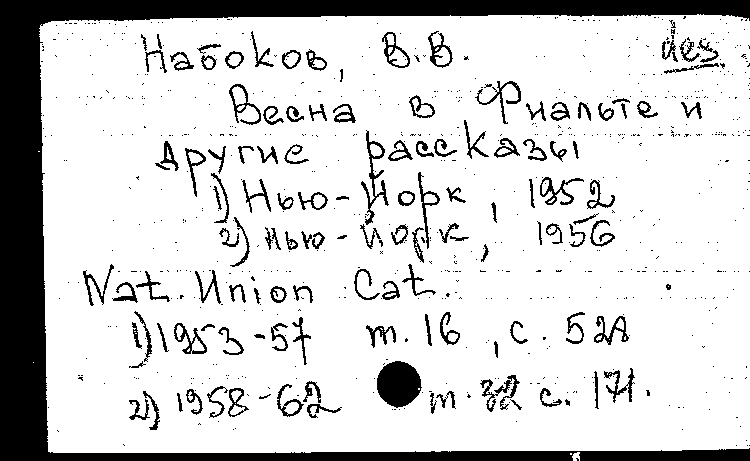 Набоков, В.В. des
Весна в Фиальте и
другие рассказы
1) Нью-Йорк, 1952
2) Нью-Йорк, 1956
Nat. Union Cat.
1) 1953-57 т. 16, с. 528
2) 1958-62 т. 32 с. 171.